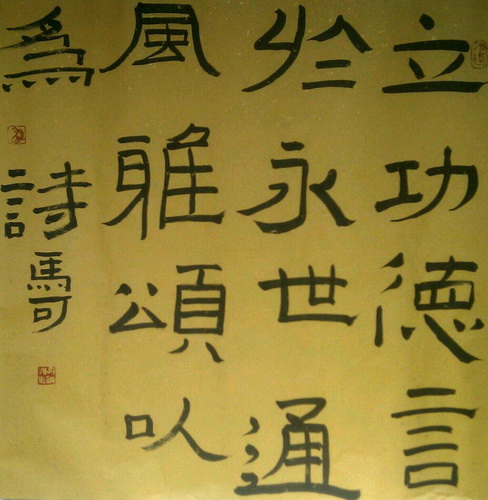 立功德言
於永世通
風雅頌以
爲詩
馬可